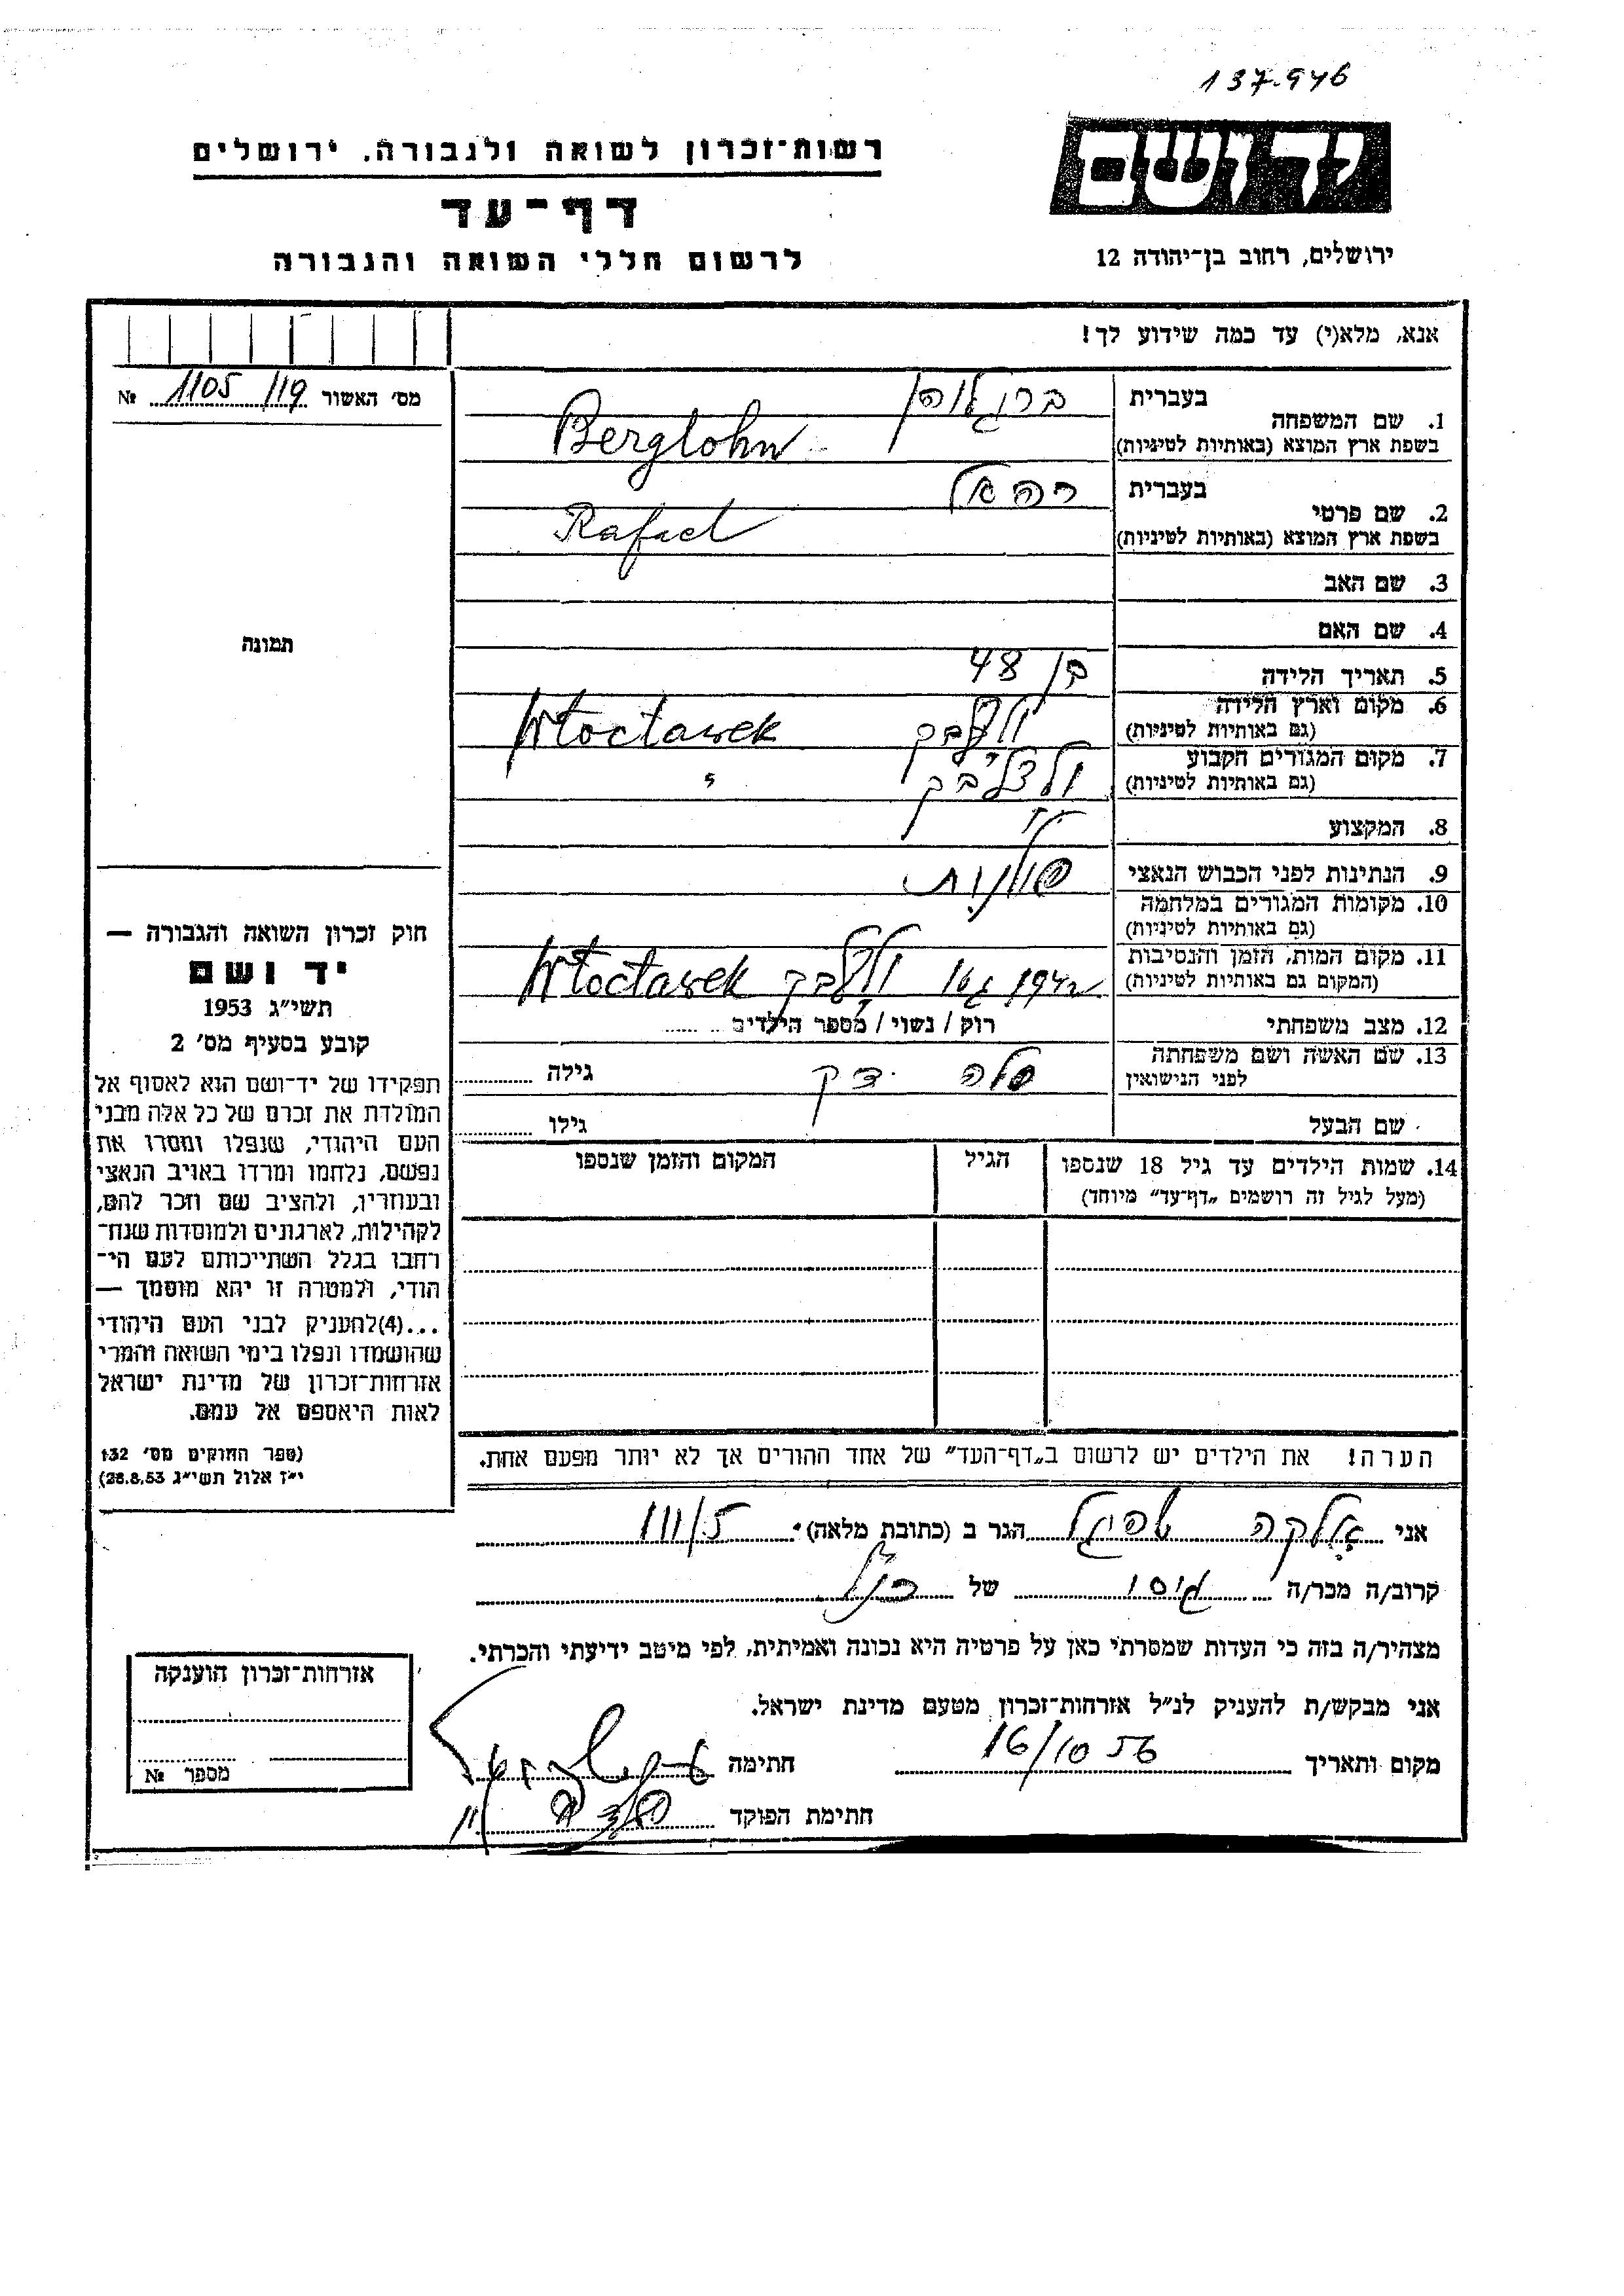 137.946
יד ושם
רשות־זכרון לשואה ולגבורה, ירושלים
דף־עד
ירושלים, רחוב בן־יהודה 12
לרשום חללי השואה והגבורה
אנא, מלא(י) עד כמה שידוע לך!
מס׳ האשור 1105/19 №
בעברית ברגלוהן
1. שם המשפחה
בשפת ארץ המוצא (באותיות לטיניות) Berglohn
בעברית רפאל
2. שם פרטי
בשפת ארץ המוצא (באותיות לטיניות) Rafael
3. שם האב
4. שם האם
תמונה
5. תאריך הלידה בן 48
6. מקום וארץ הלידה
(גם באותיות לטיניות) Włocławek
7. מקום המגורים הקבוע
(גם באותיות לטיניות) "
8. המקצוע
9. הנתינות לפני הכבוש הנאצי פולנית
10. מקומות המגורים במלחמה
(גם באותיות לטיניות)
11. מקום המות, הזמן והנסיבות
(המקום גם באותיות לטיניות) 1942 Włocławek
12. מצב משפחתי רוק / נשוי / מספר הילדים
13. שם האשה ושם משפחתה
לפני הנישואין גילה
שם הבעל גילו
14. שמות הילדים עד גיל 18 שנספו הגיל המקום והזמן שנספו
(מעל לגיל זה רושמים „דף־עד״ מיוחד)
חוק זכרון השואה והגבורה —
יד ושם
תשי״ג 1953
קובע בסעיף מס׳ 2
תפקידו של יד־ושם הוא לאסוף אל
המולדת את זכרם של כל אלה מבני
העם היהודי, שנפלו ומסרו את
נפשם, נלחמו ומרדו באויב הנאצי
ובעוזריו, ולהציב שם וזכר להם,
לקהילות, לארגונים ולמוסדות שנח־
רחבו בגלל השתייכותם לעם הי־
הודי, ולמטרה זו יהא מוסמך —
...(4)להעניק לבני העם היהודי
שהושמדו ונפלו בימי השואה והמרי
אזרחות־זכרון של מדינת ישראל
לאות היאספם אל עמם.
(ספר החוקים מס׳ 132
י״ז אלול תשי״ג 28.8.53)
הערה! את הילדים יש לרשום ב„דף־העד״ של אחד ההורים אך לא יותר מפעם אחת.
אני הגר ב (כתובת מלאה)
קרוב/ה מכר/ה גיסו של הנ״ל
מצהיר/ה בזה כי העדות שמסרתי כאן על פרטיה היא נכונה ואמיתית, לפי מיטב ידיעתי והכרתי.
אני מבקש/ת להעניק לנ״ל אזרחות־זכרון מטעם מדינת ישראל.
מקום ותאריך 16/10 56 חתימה
חתימת הפוקד
אזרחות־זכרון הוענקה
מספר №